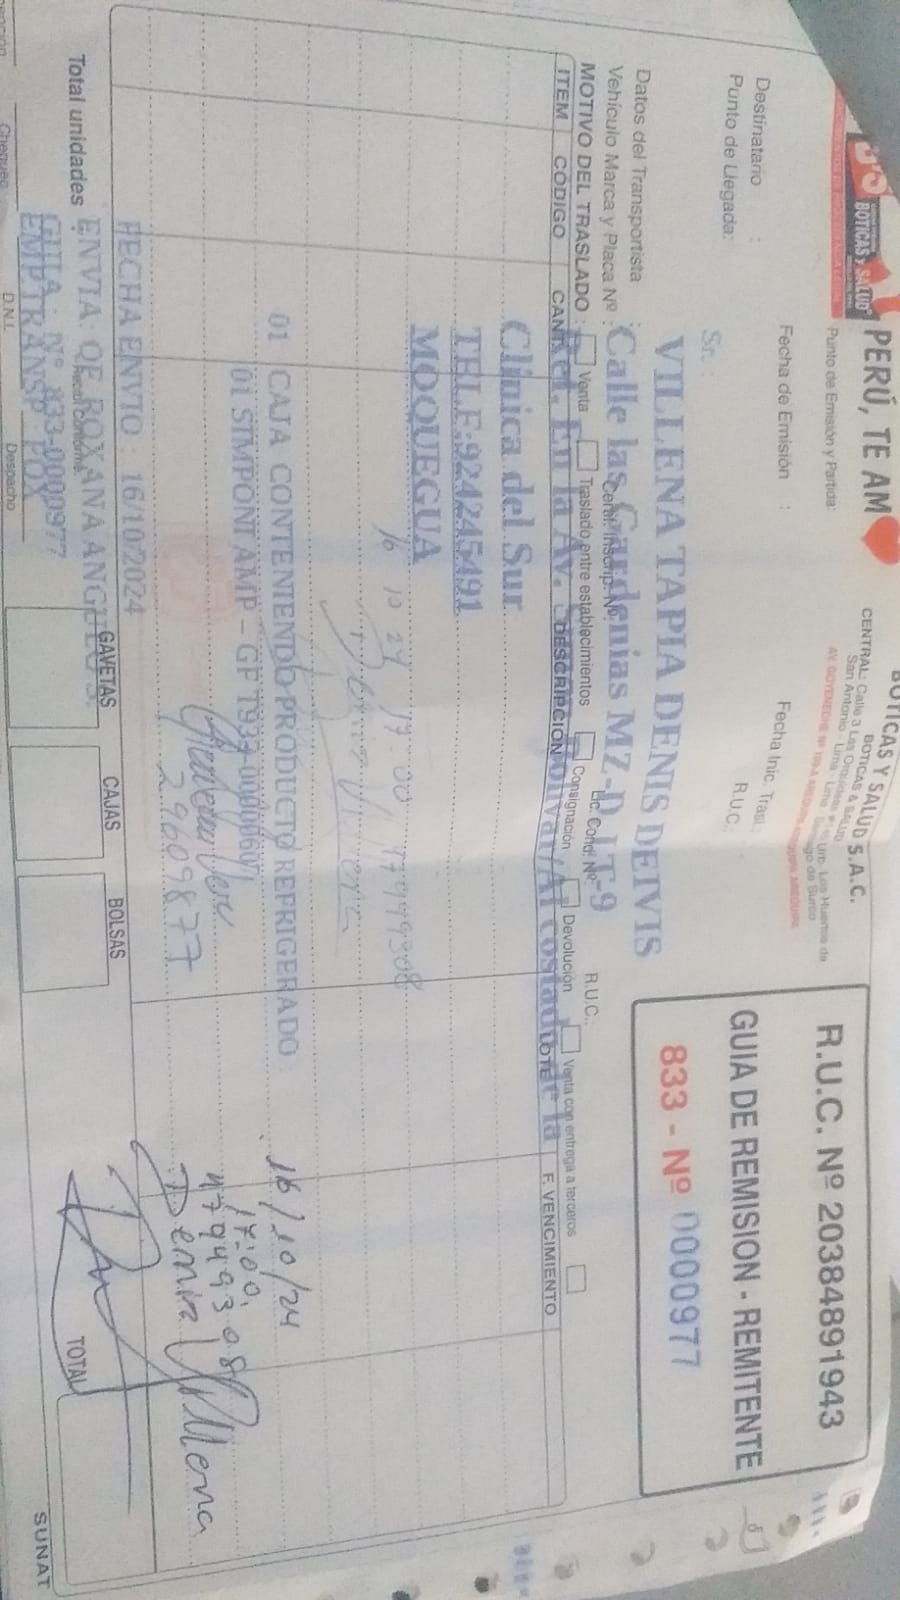 BOTICAS y SALUD
PERÚ, TE AM
BOTICAS Y SALUD S.A.C.
CENTRAL: Calle 3 Las Orquídeas
BOTICAS & SALUD
San Antonio - Lima - Lima
Urb. Los Huertos de
AV. GOYENECHE
R.U.C. Nº 20384891943
GUIA DE REMISION - REMITENTE
833 - Nº 0000977
Punto de Emisión y Partida:
Fecha de Emisión :
Fecha Inic. Trasl.:
Destinatario :
R.U.C.:
Punto de Llegada:
Sr. :
VILLENA TAPIA DENIS DEIVIS
Datos del Transportista :
R.U.C.:
Calle las Gardenias MZ-D LT-9
Vehículo Marca y Placa Nº :
Certif. Inscrip. Nº
Lic. Cond. Nº
MOTIVO DEL TRASLADO :
Venta
Traslado entre establecimientos
Consignación
Devolución
Venta con entrega a terceros
ITEM
CÓDIGO
CANT.
DESCRIPCION
LOTE
F. VENCIMIENTO
En la Av.
Al costado de la
Clinica del Sur
TELF:924245491
MOQUEGUA
16 10 24 17:00 47949308
01 CAJA CONTENIENDO PRODUCTO REFRIGERADO
16/10/24
01 SIMPONI AMP – GF T933-0000607
17:00
47949308
29609877
Denis Villena
FECHA ENVIO : 16/10/2024
ENVIA: QF. ROXANA ANGELES.
GUIA : Nº 833-0000977
EMP TRANSP FOX
Total unidades :
Recibí Conforme
GAVETAS
CAJAS
BOLSAS
TOTAL
Chequeo
D.N.I.
Despacho
SUNAT